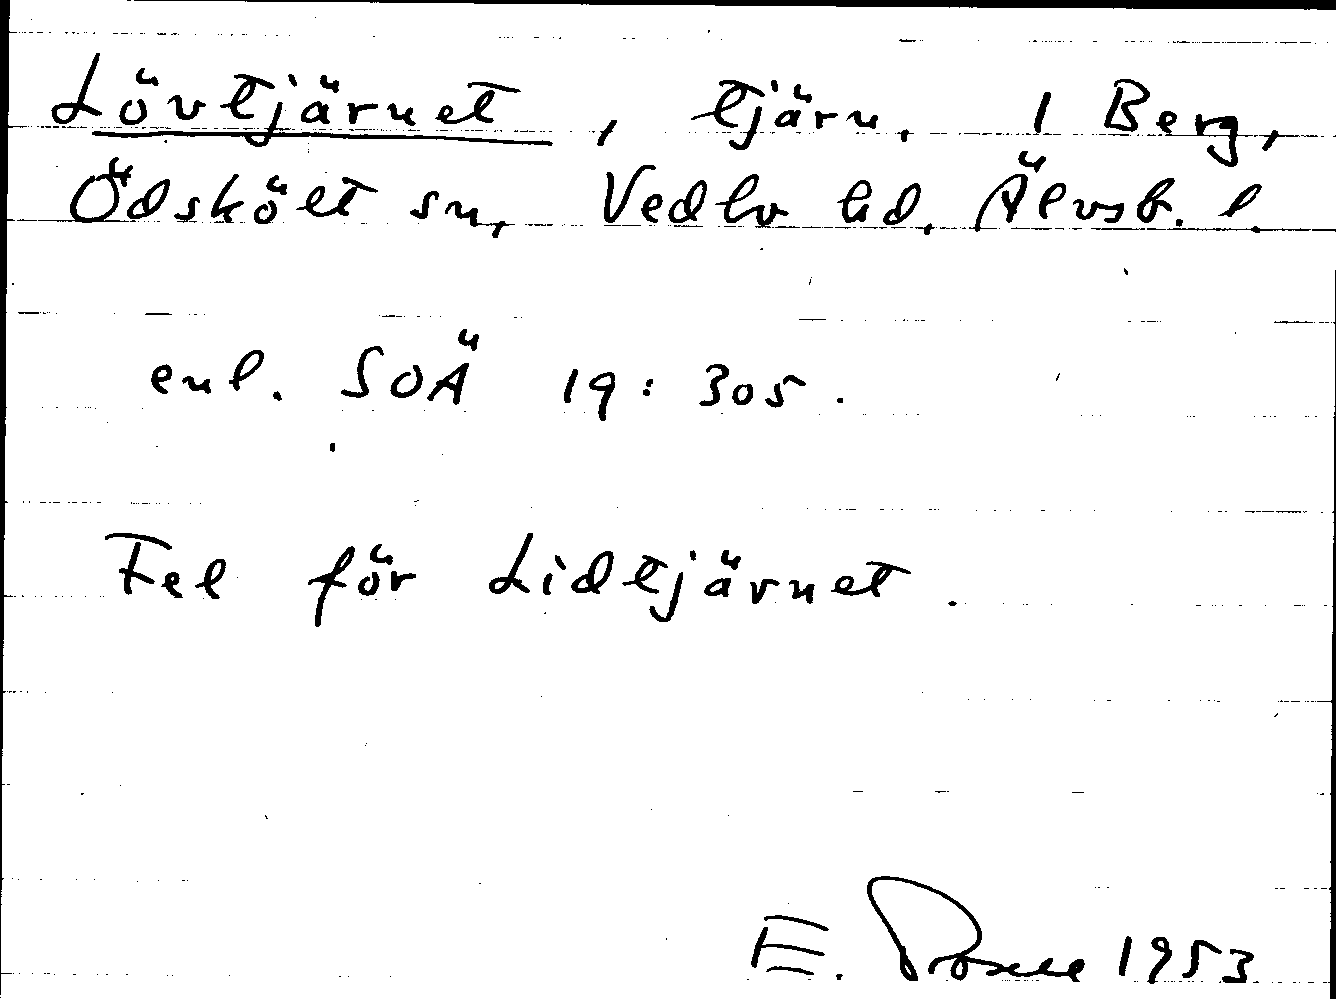 Lövtjärnet, tjärn. 1 Berg,
Ödskölt sn, Vedbo hd. Älvsb. l.
enl. SOÄ 19: 305.
Fel för Lidtjärnet.
E. 1953